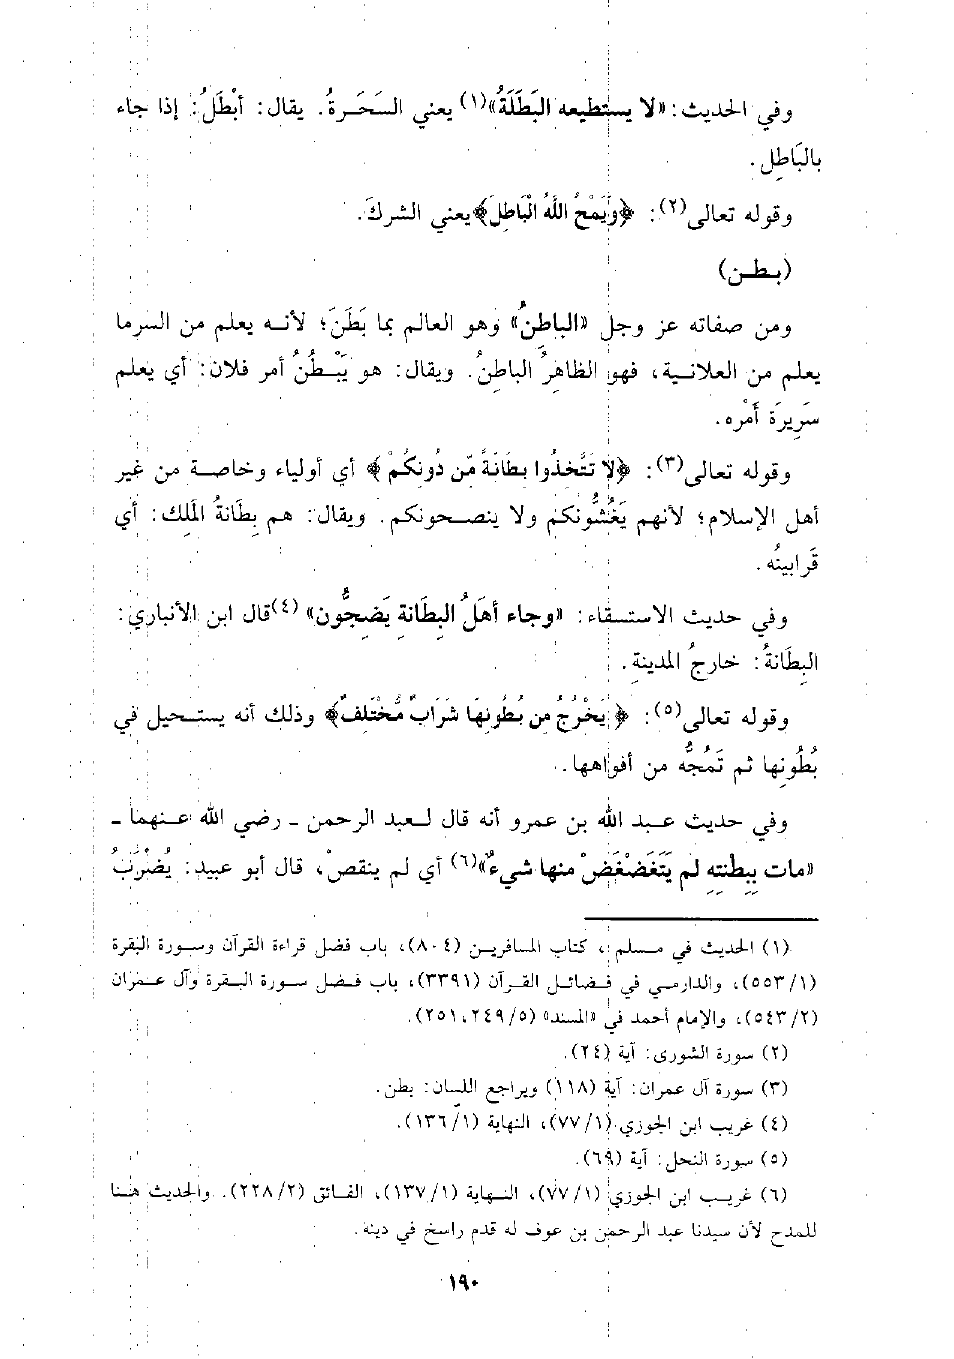 وفي الحديث: «لا يستطيعه البَطَلَةُ»(١) يعني السَحَرةُ. يقال: أبْطَلُ: إذا جاء
بالبَاطِل.
وقوله تعالى(٢): ﴿وَيَمْحُ اللَّهُ الْبَاطِلَ﴾ يعني الشركَ.
(بـطـن)
ومن صفاته عز وجل «الباطِنُ» وهو العالم بما بَطَنَ؛ لأنه يعلم من السرما
يعلم من العلانية، فهو الظاهِرُ الباطِنُ. ويقال: هو يَبْطُنُ أمر فلان: أي يعلم
سَرِيرَة أَمْره.
وقوله تعالى(٣): ﴿لا تَتَّخِذُوا بِطَانَةً مِّن دُونِكُمْ﴾ أي أولياء وخاصة من غير
أهل الإسلام؛ لأنهم يَغُشُّونكم ولا ينصحونكم. ويقال: هم بِطَانَةُ المَلِك: أي
قَرابينُه.
وفي حديث الاستسقاء: «وجاء أهَلُ البِطَانةِ يَضِجُّون» (٤)قال ابن الأنباري:
البِطَانَةُ: خارجُ المدينةِ.
وقوله تعالى(٥): ﴿يَخْرُجُ مِن بُطُونِهَا شَرَابٌ مُّخْتَلِفٌ﴾ وذلك أنه يستحيل في
بُطُونِها ثم تَمُجُّه من أفواهها.
وفي حديث عبد الله بن عمرو أنه قال لعبد الرحمن ـ رضي الله عنهما ـ
«مات بِبِطْنتِهِ لم يَتَغَضْغَضْ منها شيءٌ»(٦) أي لم ينقصْ، قال أبو عبيد: يُضْرَبُ
(١) الحديث في مسلم، كتاب المسافرين (٨٠٤)، باب فضل قراءة القرآن وسورة البقرة
(٥٥٣/١)، والدارمي في فضائل القرآن (٣٣٩١)، باب فضل سورة البقرة وآل عمران
(٥٤٣/٢)، والإمام أحمد في «المسند» (٢٤٩/٥، ٢٥١).
(٢) سورة الشورى: آية (٢٤).
(٣) سورة آل عمران: آية (١١٨) ويراجع اللسان: بطن.
(٤) غريب ابن الجوزي (٧٧/١)، النهاية (١٣٦/١).
(٥) سورة النحل: آية (٦٩).
(٦) غريب ابن الجوزي (٧٧/١)، النهاية (١٣٧/١)، الفائق (٢٢٨/٢). والحديث هنا
للمدح لأن سيدنا عبد الرحمن بن عوف له قدم راسخ في دينه.
١٩٠